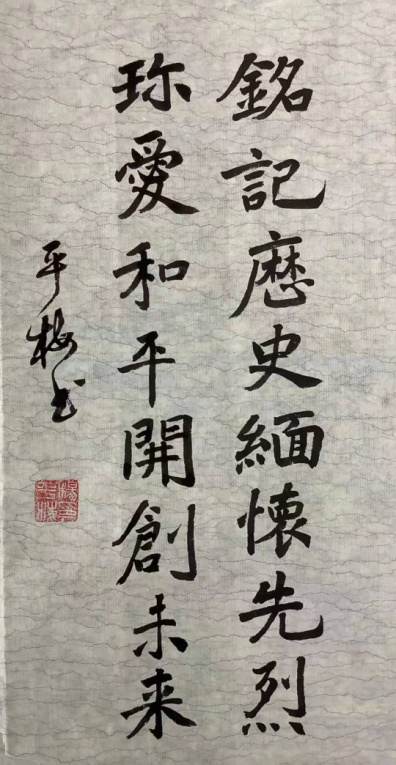 銘記歷史緬懷先烈
珎愛和平開創未来
平梅书